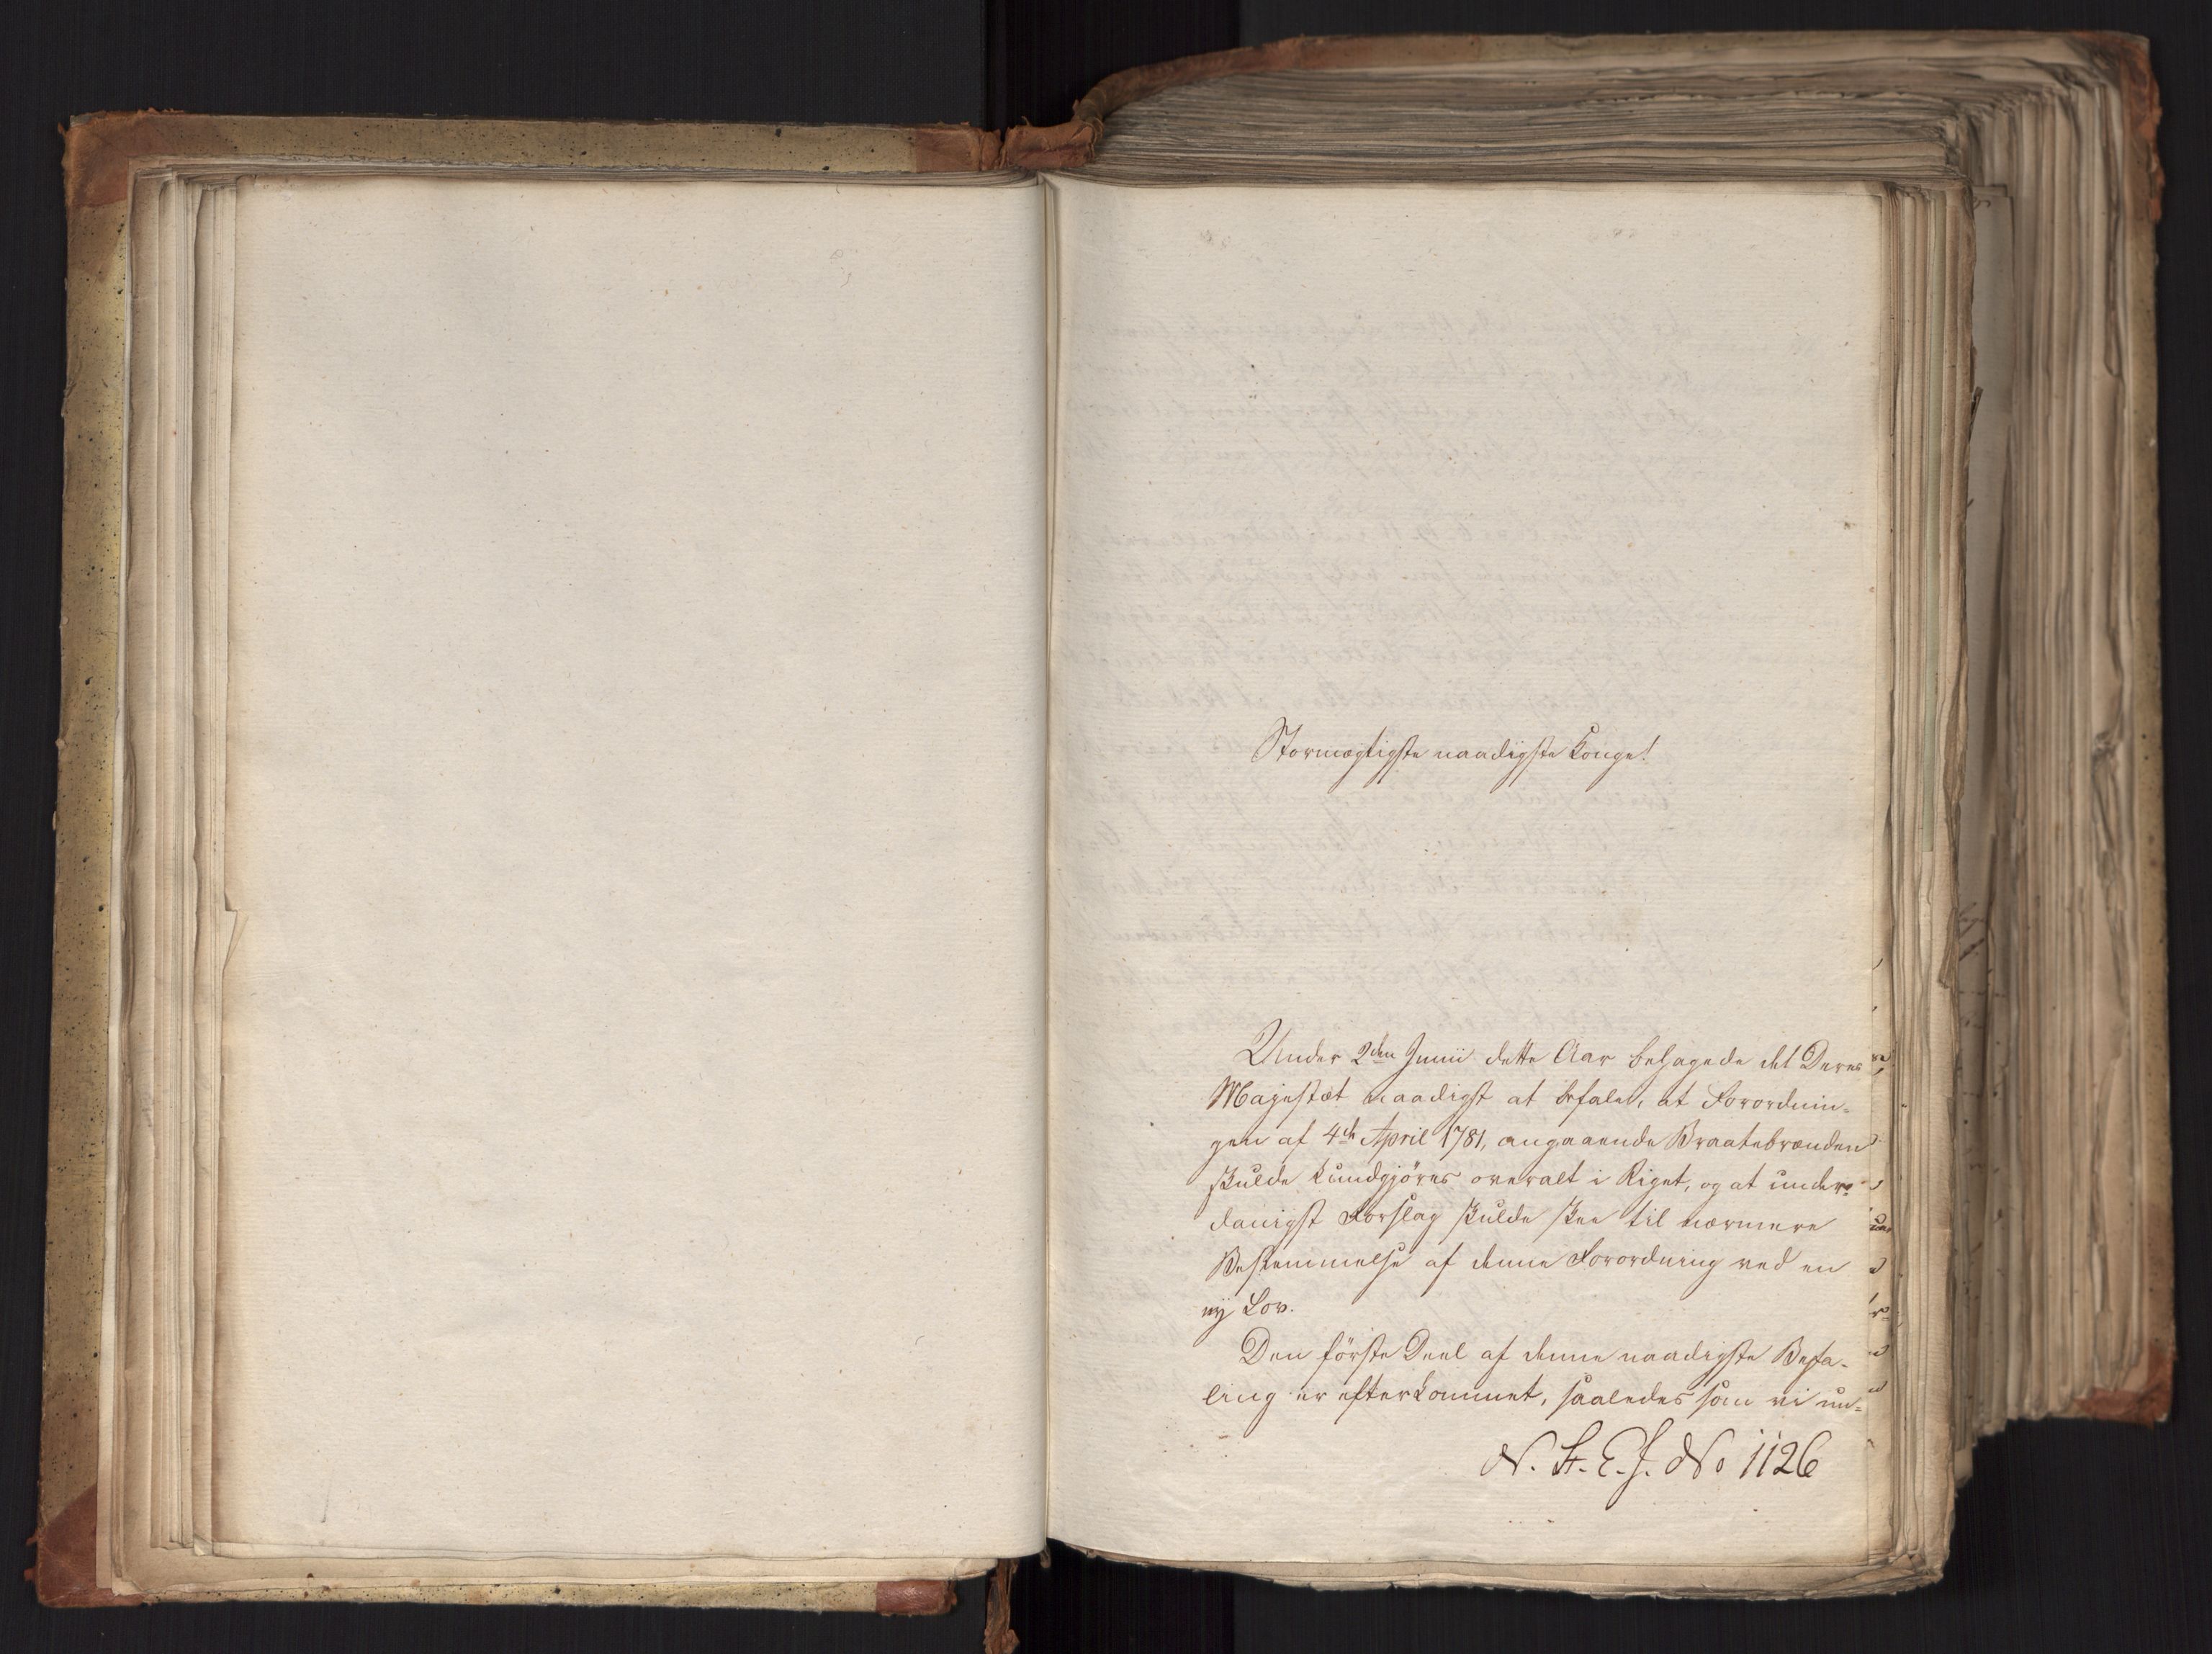 Stormægtigste naadigste Konge!
Under 2den Junii dette Aar behagede det Deres
Majestæt naadigst at befale, at Forordnin-
gen af 4de April 1781, angaaende Braatebrænden
skulde kundgjöres overalt i Riget, og at under-
danigst Forslag skulde skee til nærmere
Bestemmelse af denne Forordning ved en
ny Lov.
Den förste Deel af denne naadigste Befa-
ling er efterkommet, saaledes som vi un-
N. St. E. J. No 1126